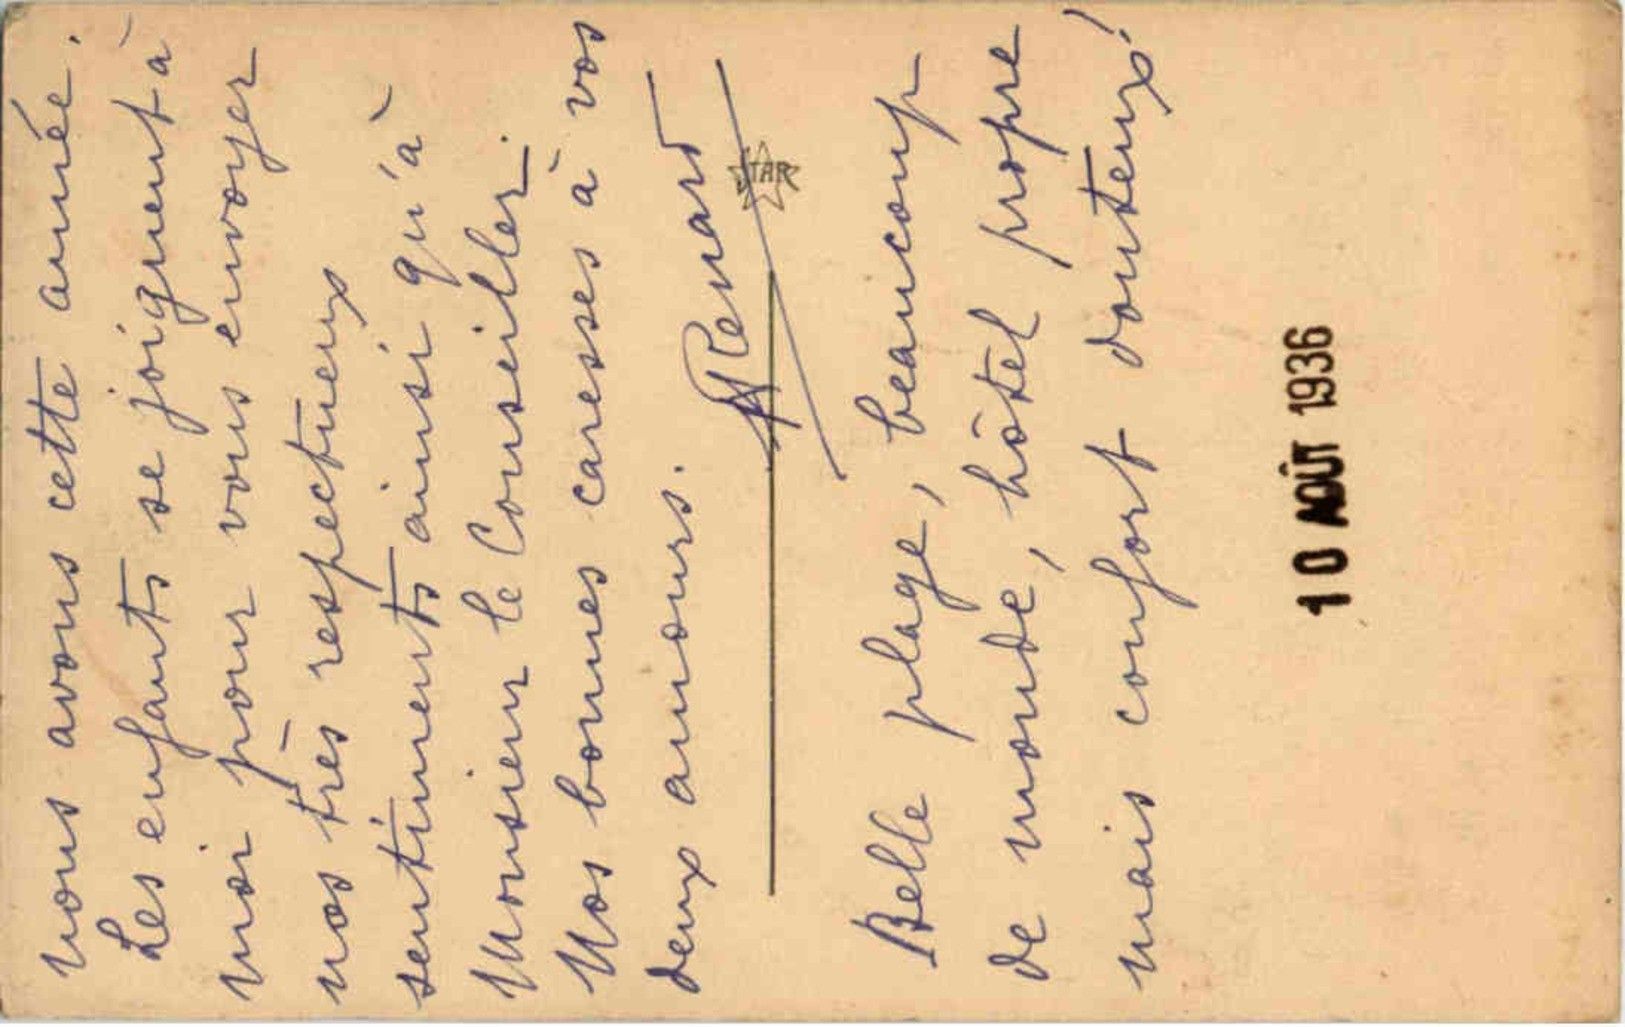 nous avons cette année.
Les enfants se joignent à
moi pour vous envoyer
nos très respectueux
sentiments ainsi qu'à
Monsieur le Conseiller.
Nos bonnes caresses à vos
deux amours.
Renard
STAR
Belle plage, beaucoup
de monde, hôtel propre
mais confort douteux!
10 AOÛT 1936